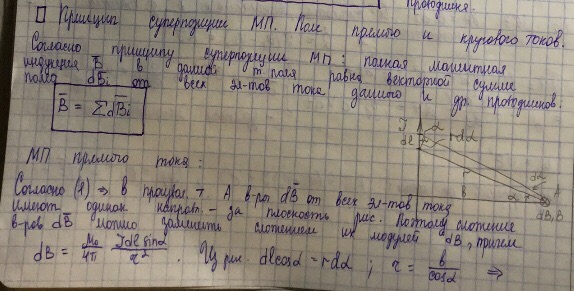 проводника.
Принцип суперпозиции МП. Поле прямого и кругового токов.
Согласно принципу суперпозиции МП: полная магнитная
индукция B̅ в данной т. поля равна векторной сумме
полей dB̅i от всех эл-тов тока данного и др. проводников.
B̅ = ∑dB̅i
I α
dl rdα
r dα
B α A
dB,B
МП прямого тока:
Согласно (1) ⇒ в произвол. т. A в-ры dB̅ от всех эл-тов тока
имеют одинак направл. – за плоскость рис. Поэтому сложение
в-ров dB̅ можно заменить сложением их модулей dB, причем
dB = μ₀/4π Idl sinα/r². Из рис. dlcosα = rdα; r = b/cosα ⇒